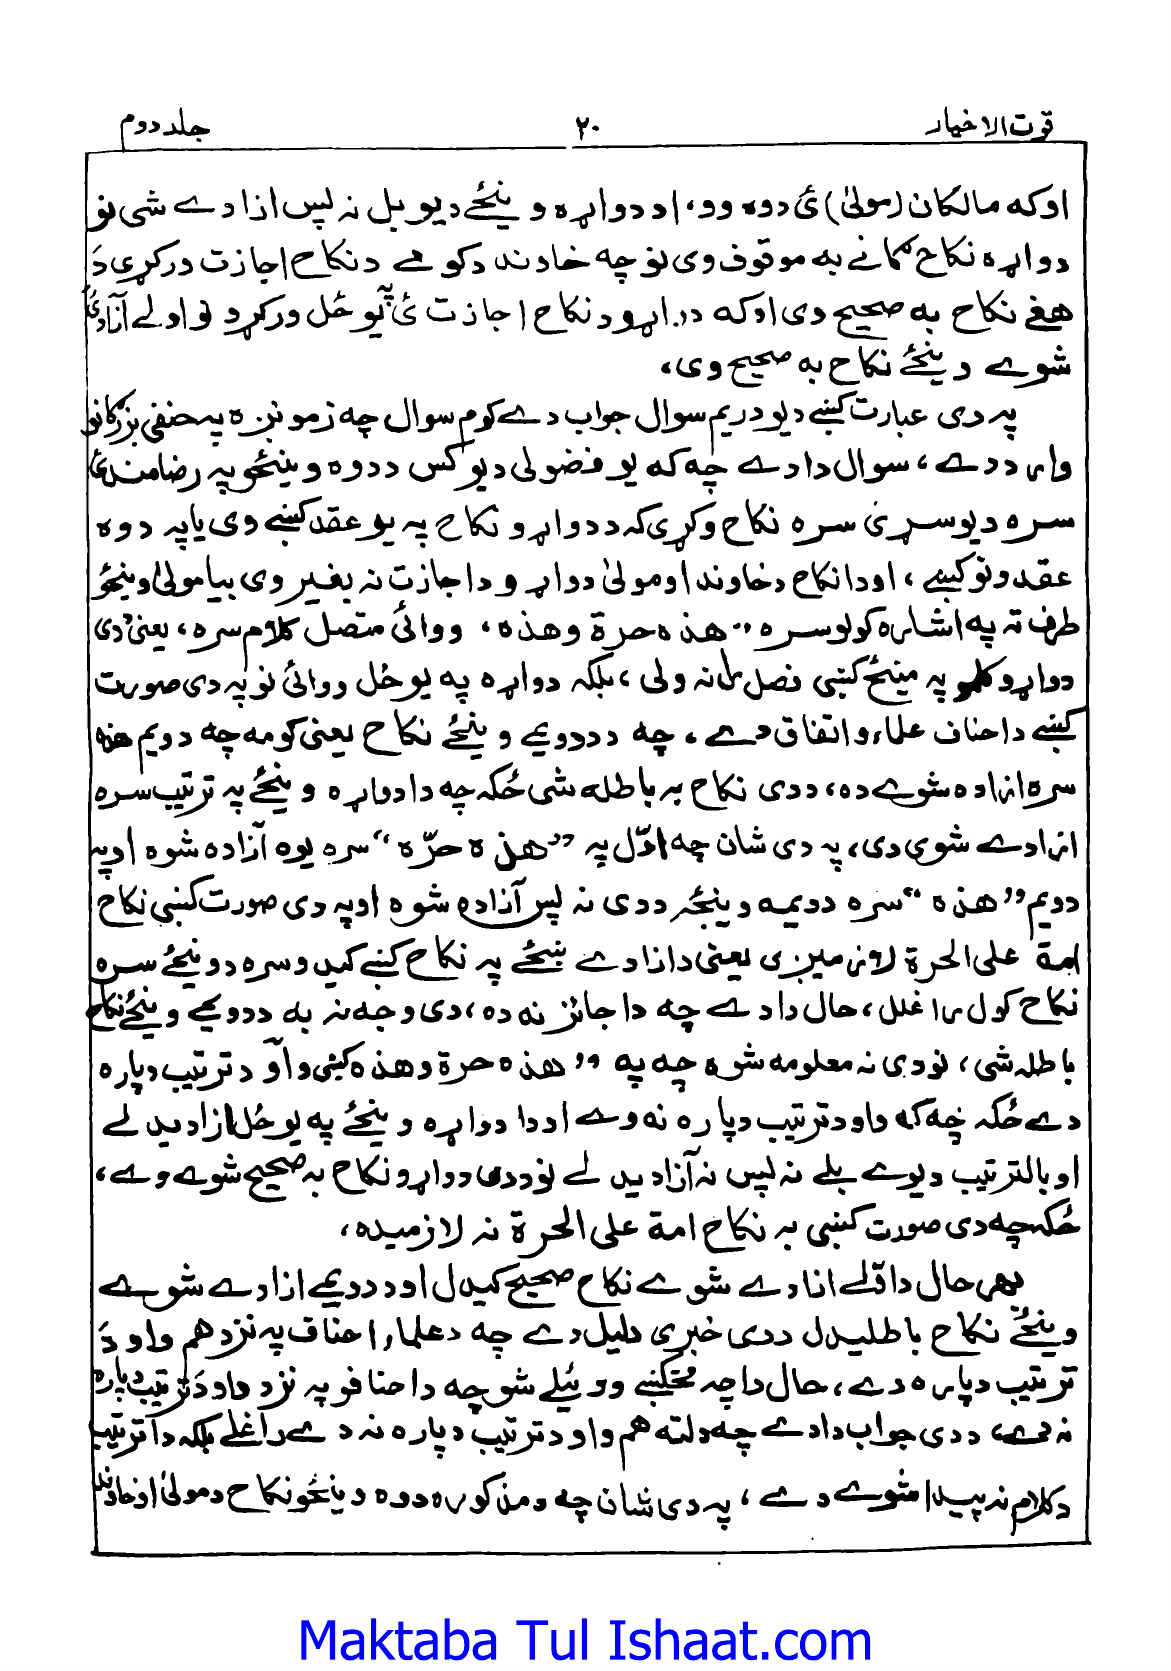 قوت الاخیار ۲۰ جلد دوم
اوکه مالکان (مولیٰ) ئ دوه وو، او دواړه وینځے دیو بل نه پس ازادے شی نو
دواړه نکاح به موقوف وی نو چه خاوند دکومے د نکاح اجازت ورکړی دَ
هغے نکاح به صحیح وی اوکه د دواړو د نکاح اجازت ئ په یو ځل ورکړو نو اولے آزادی
شوے وینځے نکاح به صحیح وی،
په دی عبارت کښے دیو دریم سوال جواب دے کوم سوال چه زمونږه په حنفی بزرګانو
وارد دے، سوال دا دے چه که یو فضولی دیو کس د دوه وینځو په رضامندئ
سره دیو سړی سره نکاح وکړی که د دواړو نکاح په یو عقد کښے وی یا په دوه
عقدونو کښے، او دا نکاح د خاوند او مولیٰ دواړو د اجازت نه بغیر وی بیا مولیٰ وینځو
طرف ته په اشاره کولو سره "هذه حرة وهذه، ووائی متصل کلام سره، یعنی دی
دواړو کلمو په مینځ کښی فصل رانه ولی، بلکه دواړه په یو ځل ووائی نو په دی صورت
کښے د احناف علماءو اتفاق دے، چه د دویمے وینځے نکاح یعنی کومه چه دویم هذه
سره ازاده شوے ده، ددی نکاح به باطله شی ځکه چه دا دواړه وینځے په ترتیب سره
ازادے شوی دی، په دی شان چه اوّل په "هذه حرّه" سره یوه آزاده شوه او په
دویم "هذه" سره دویمه وینځه ددی نه پس آزاده شوه او په دی صورت کښی نکاح
امة علی الحرة لازمیږی یعنی د ازادے ښځے په نکاح کښے کیدو سره د وینځے سره
نکاح کول راغلل، حال دا دے چه دا جائز نه ده، دی وجه نه به د دویمے وینځے نکاح
باطله شی، نو دی نه معلومه شوه چه په "هذه حرة وهذه کښی واو د ترتیب دپاره
دے ځکه چه که واو د ترتیب دپاره نه وے او دا دواړه وینځے په یو ځل ازادیدلے
او بالترتیب دیوے بلے نه پس نه آزادیدلے نو ددی دواړو نکاح به صحیح شوے وے،
ځکه چه دی صورت کښی به نکاح امة علی الحرة نه لازمیده،
بهر حال د اولے ازادے شوے نکاح صحیح کیدل او د دویمے ازادے شوے
وینځے نکاح باطلیدل ددی خبری دلیل دے چه د علماء احناف په نزد هم واو دَ
ترتیب دپاره دے، حال دا چه مخکښے وویئلے شو چه د احنافو په نزد واو دَ ترتیب دپاره
نه دے، ددی جواب دا دے چه دلته هم واو د ترتیب دپاره نه دے راغلے بلکه دا ترتیب
د کلام نه پیدا شوے دے، په دی شان چه د مذکوره دوه وینځو نکاح د مولیٰ او خاوند
Maktaba Tul Ishaat.com